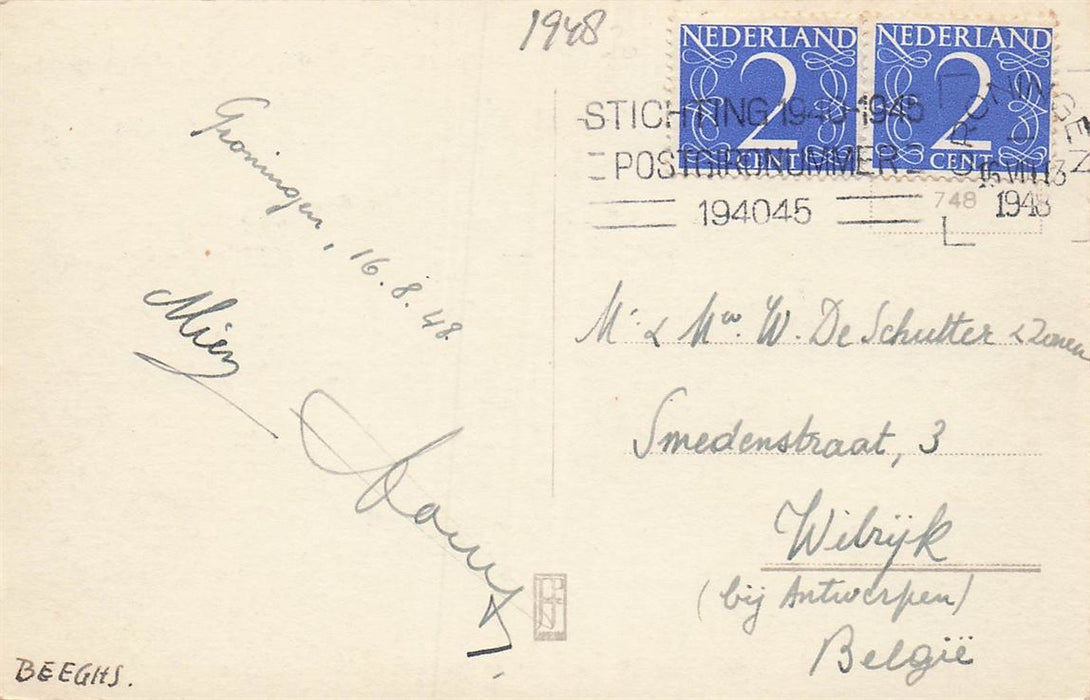 1948
NEDERLAND NEDERLAND
2 2
CENT CENT
STICHTING 1940-1945
POSTGIRONUMMER
194045
GRONINGEN
1948
748
Groningen, 16.8.48
Mien
Mr & Mw. W. De Schutter & Zonen
Smedenstraat, 3
Wilrijk
(bij Antwerpen)
België
BEEGHS.